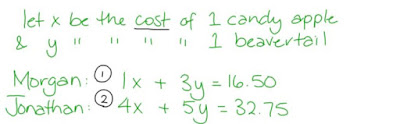 let x be the cost of 1 candy apple
& y " " " " 1 beavertail
Morgan: ① 1x + 3y = 16.50
Jonathan: ② 4x + 5y = 32.75